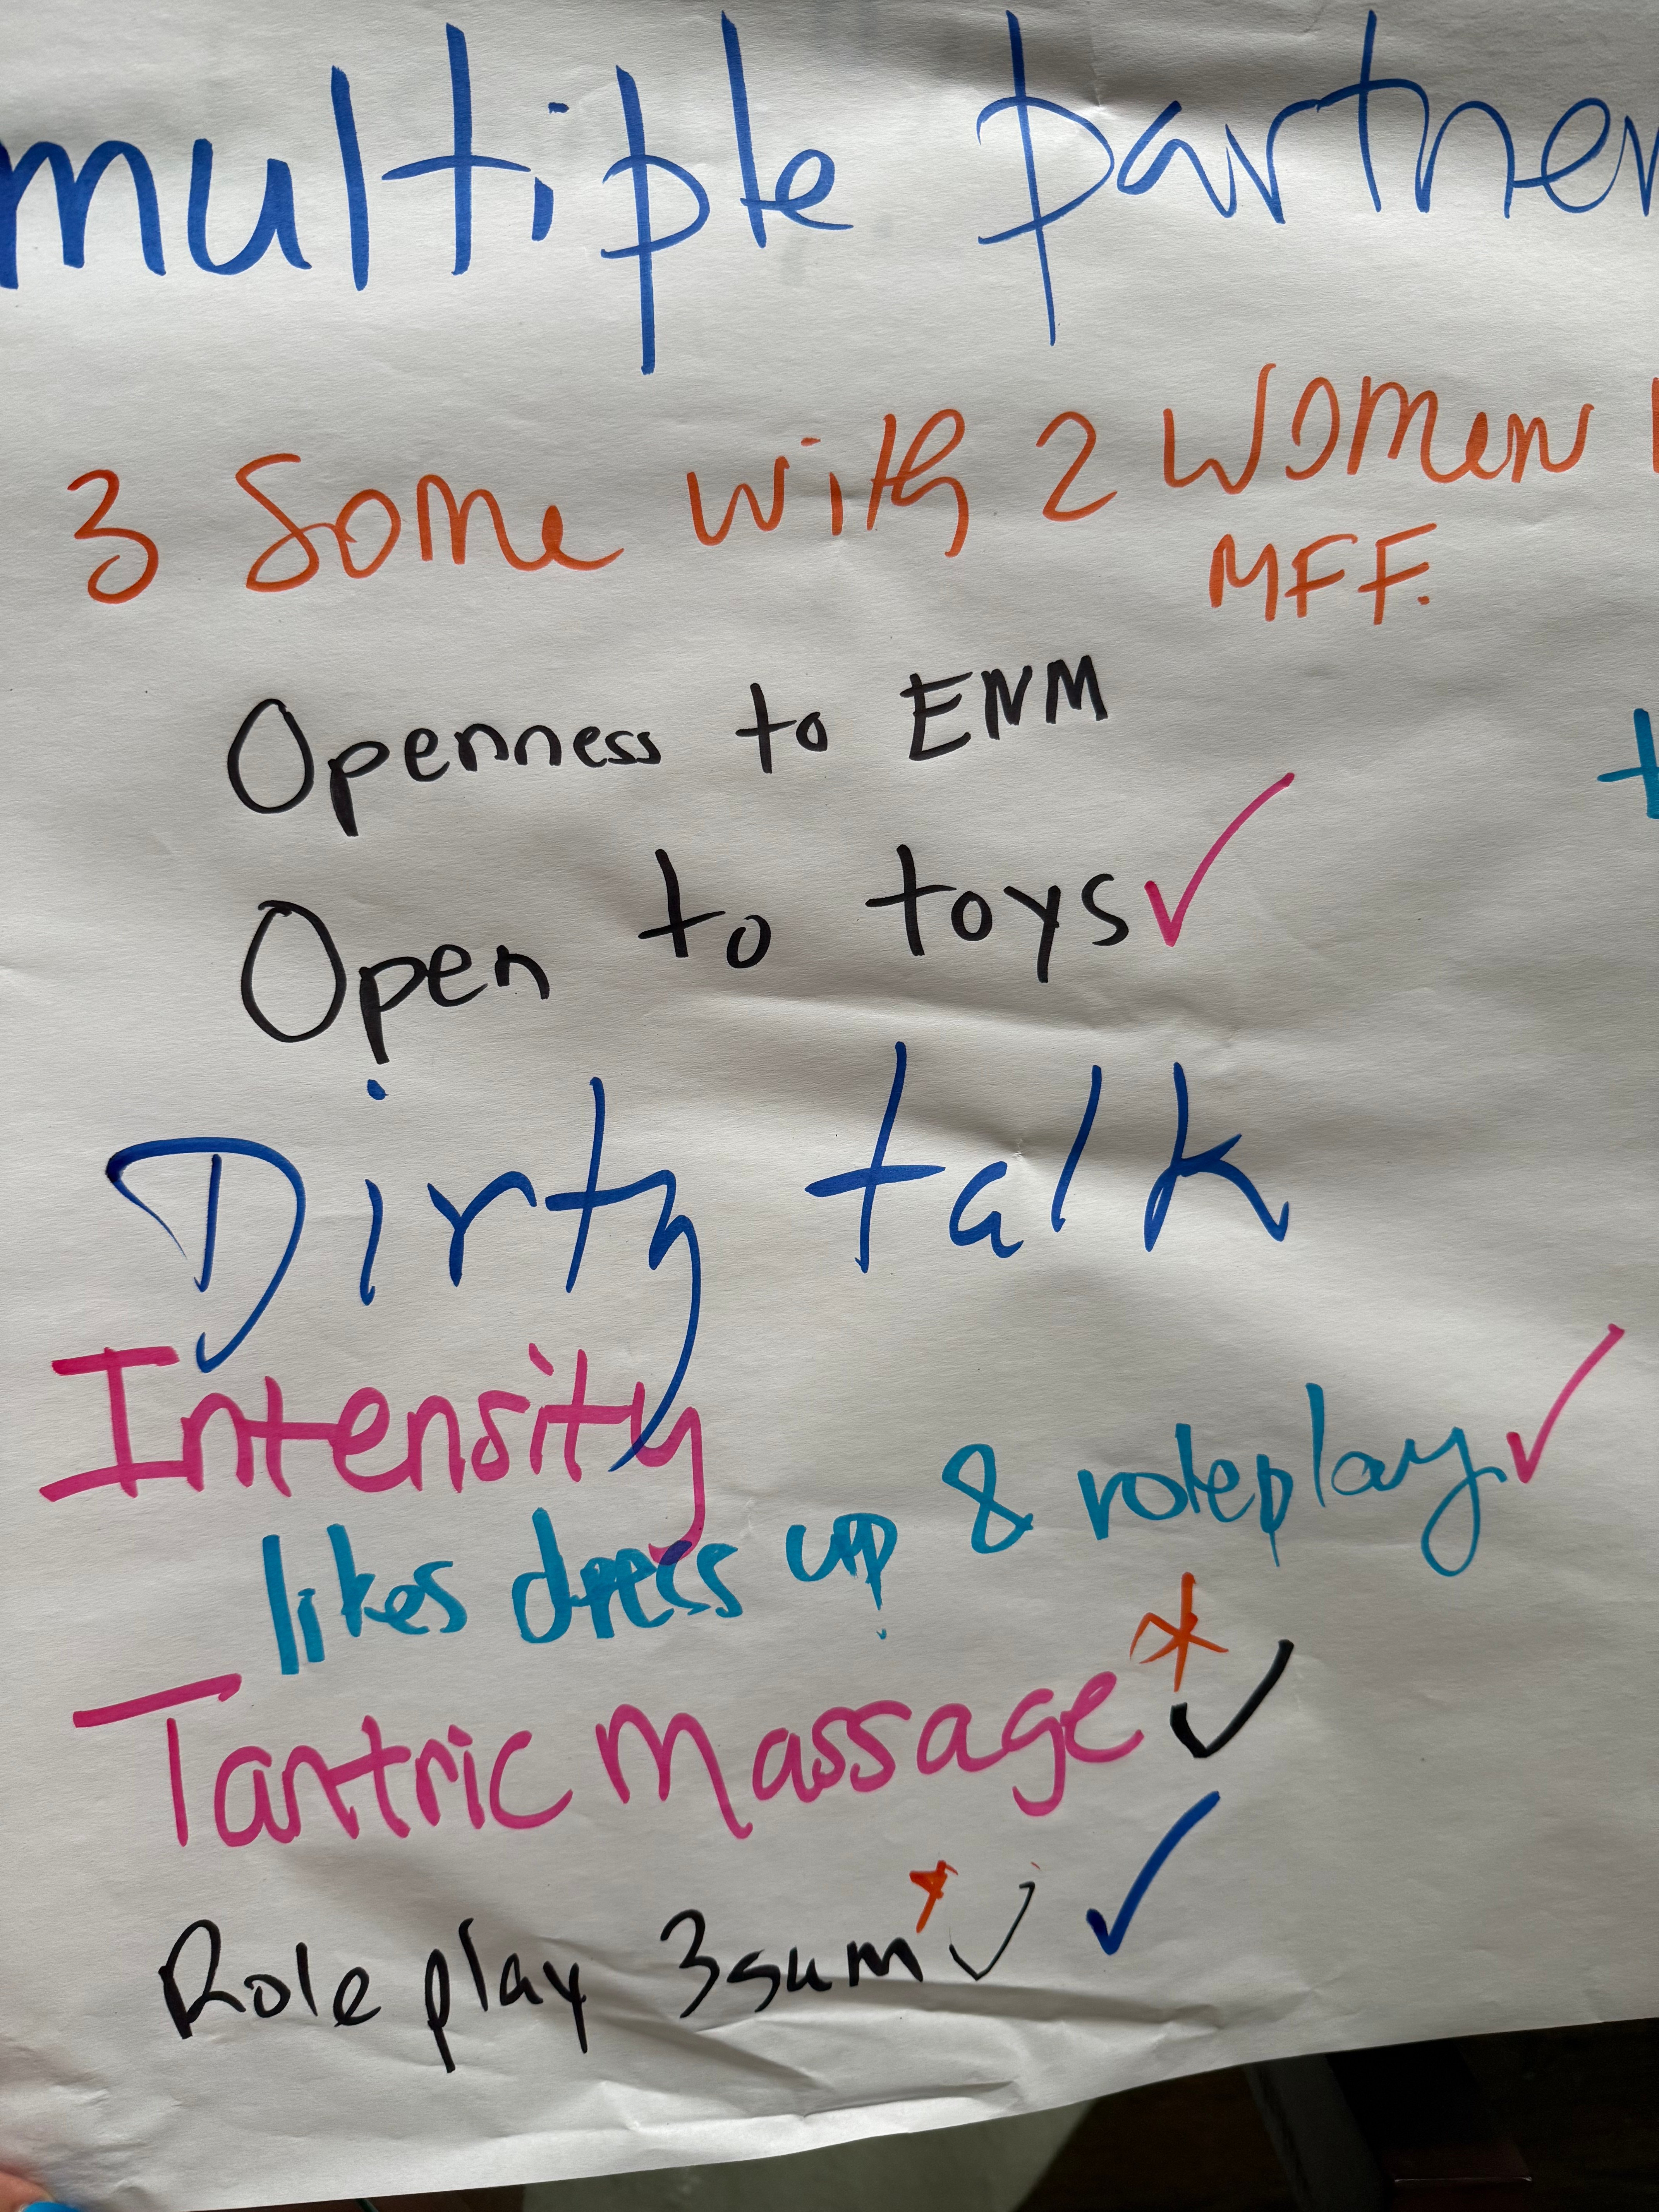 multiple partner
3 Some with 2 Women
MFF.
Openness to ENM
Open to toys ✓
Dirty talk
Intensity
likes dress up & roleplay ✓
Tantric Massage * ✓
Role play 3sum * ✓ ✓